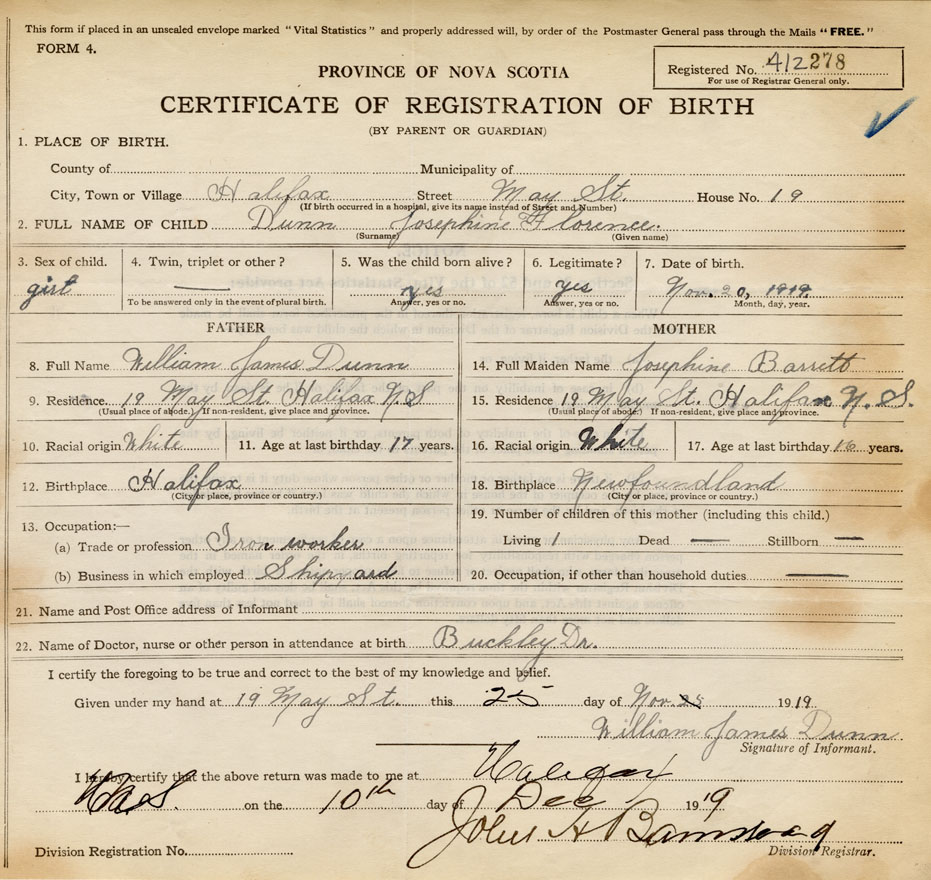 This form if placed in an unsealed envelope marked "Vital Statistics" and properly addressed will, by order of the Postmaster General pass through the Mails "FREE."
FORM 4.
Registered No. 412278
For use of Registrar General only.
PROVINCE OF NOVA SCOTIA
CERTIFICATE OF REGISTRATION OF BIRTH
(BY PARENT OR GUARDIAN)
1. PLACE OF BIRTH.
County of Municipality of
City, Town or Village Halifax Street May St. House No. 19
(If birth occurred in a hospital, give its name instead of Street and Number)
2. FULL NAME OF CHILD Dunn Josephine Florence.
(Surname) (Given name)
3. Sex of child. 4. Twin, triplet or other? 5. Was the child born alive? 6. Legitimate? 7. Date of birth.
girl — yes yes Nov. 20, 1919.
To be answered only in the event of plural birth. Answer, yes or no. Answer, yes or no. Month, day, year.
FATHER MOTHER
8. Full Name William James Dunn 14. Full Maiden Name Josephine Barrett
9. Residence 19 May St. Halifax N.S 15. Residence 19 May St. Halifax N.S.
(Usual place of abode.) If non-resident, give place and province. (Usual place of abode.) If non-resident, give place and province.
10. Racial origin White 11. Age at last birthday 17 years. 16. Racial origin White 17. Age at last birthday 16 years.
12. Birthplace Halifax 18. Birthplace Newfoundland
(City or place, province or country.) (City or place, province or country.)
13. Occupation:— 19. Number of children of this mother (including this child.)
(a) Trade or profession Iron worker Living 1 Dead — Stillborn —
(b) Business in which employed Shipyard 20. Occupation, if other than household duties —
21. Name and Post Office address of Informant
22. Name of Doctor, nurse or other person in attendance at birth Buckley Dr.
I certify the foregoing to be true and correct to the best of my knowledge and belief.
Given under my hand at 19 May St. this 25 day of Nov. 25 1919.
William James Dunn
Signature of Informant.
I hereby certify that the above return was made to me at Halifax
on the 10th day of Dec 1919
John H
Division Registration No. Division Registrar.